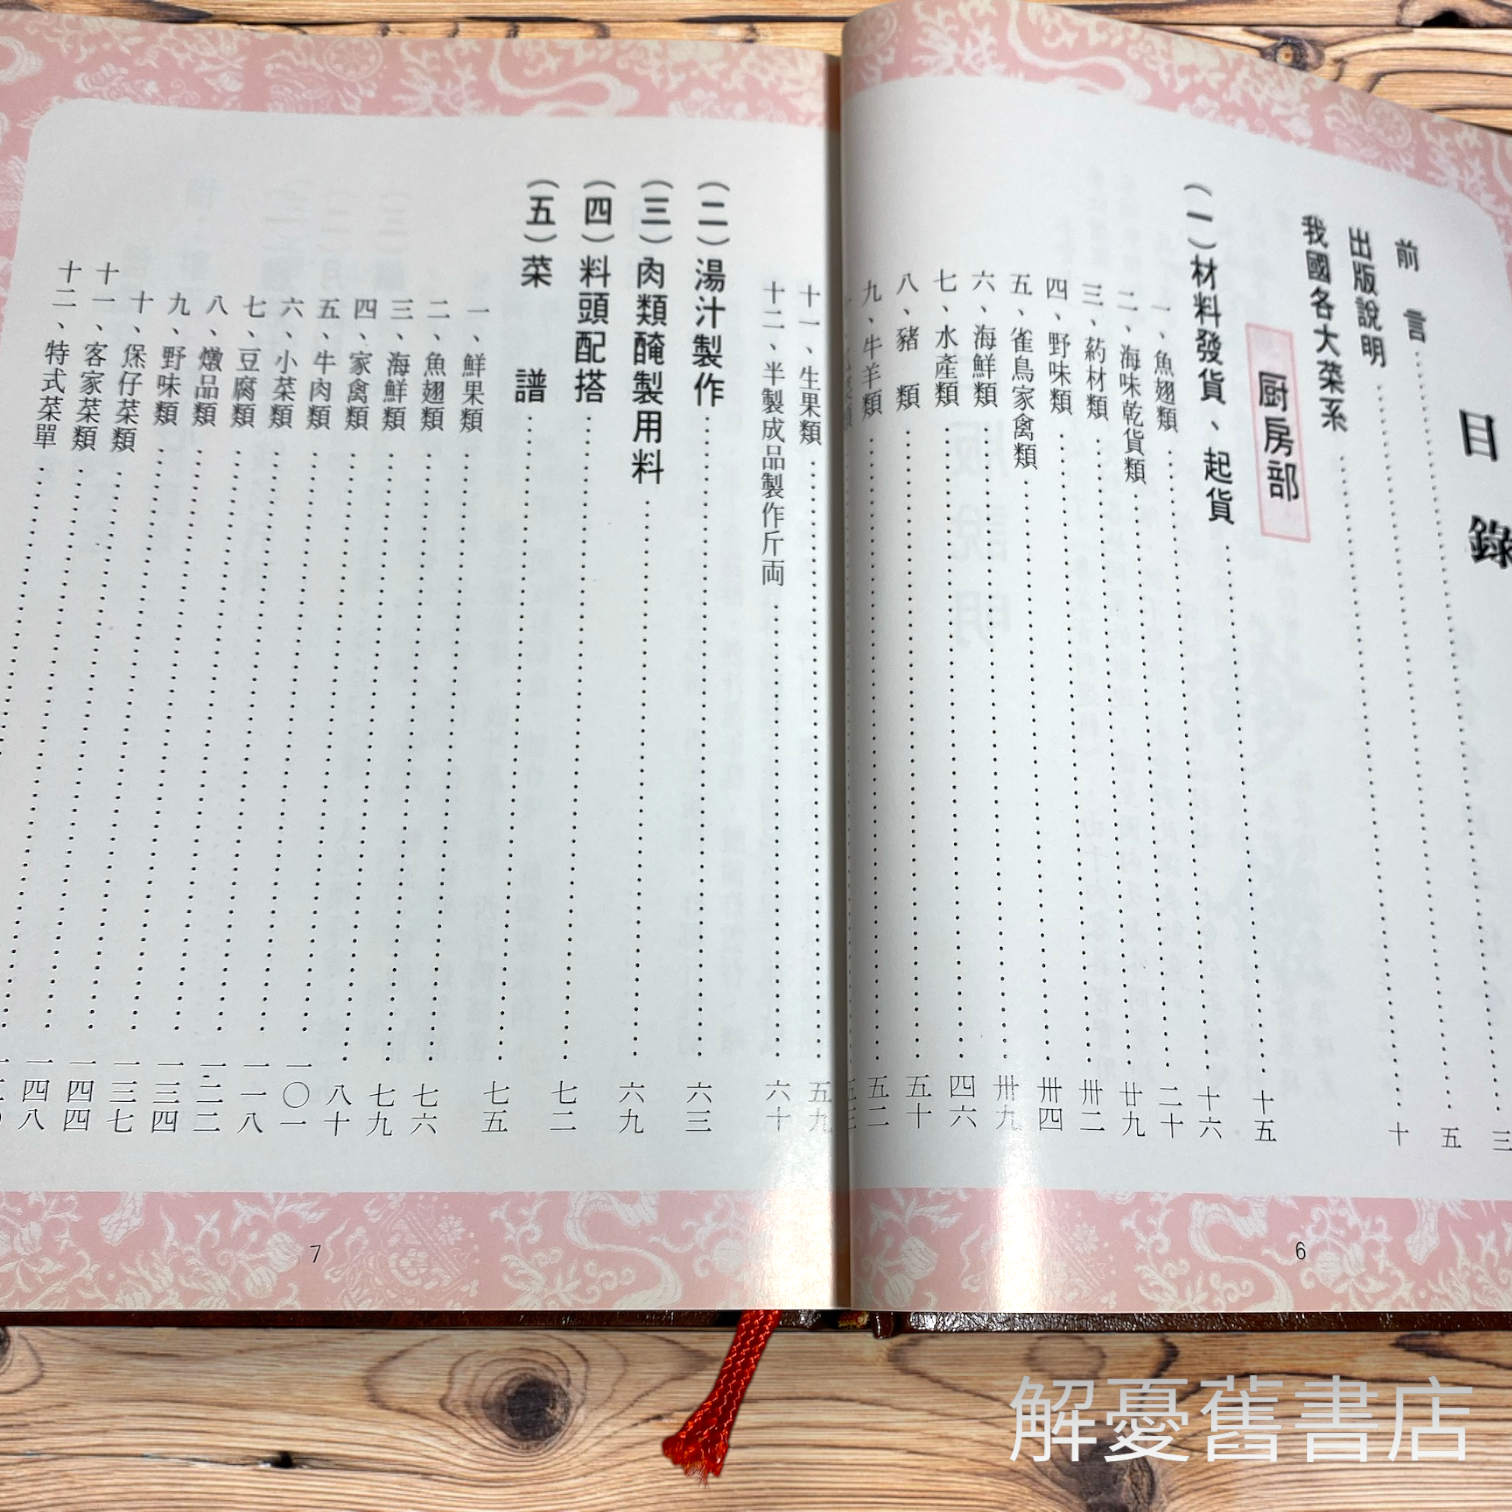 目錄
前言……三
出版說明……五
我國各大菜系……十
厨房部
(一)材料發貨、起貨……十五
一、魚翅類……十六
二、海味乾貨類……二十
三、葯材類……廿九
四、野味類……卅二
五、雀鳥家禽類……卅四
六、海鮮類……卅九
七、水產類……四六
八、豬類……五十
九、牛羊類……五二
6
十一、生果類……五九
十二、半製成品製作斤両……六十
(二)湯汁製作……六三
(三)肉類醃製用料……六九
(四)料頭配搭……七二
(五)菜譜……七五
一、鮮果類……七六
二、魚翅類……七九
三、海鮮類……八十
四、家禽類……一〇一
五、牛肉類……一一八
六、小菜類……一二二
七、豆腐類……一三四
八、燉品類……一三七
九、野味類……一四四
十、保仔菜類……一四八
十一、客家菜類……
十二、特式菜單……
7
解憂舊書店